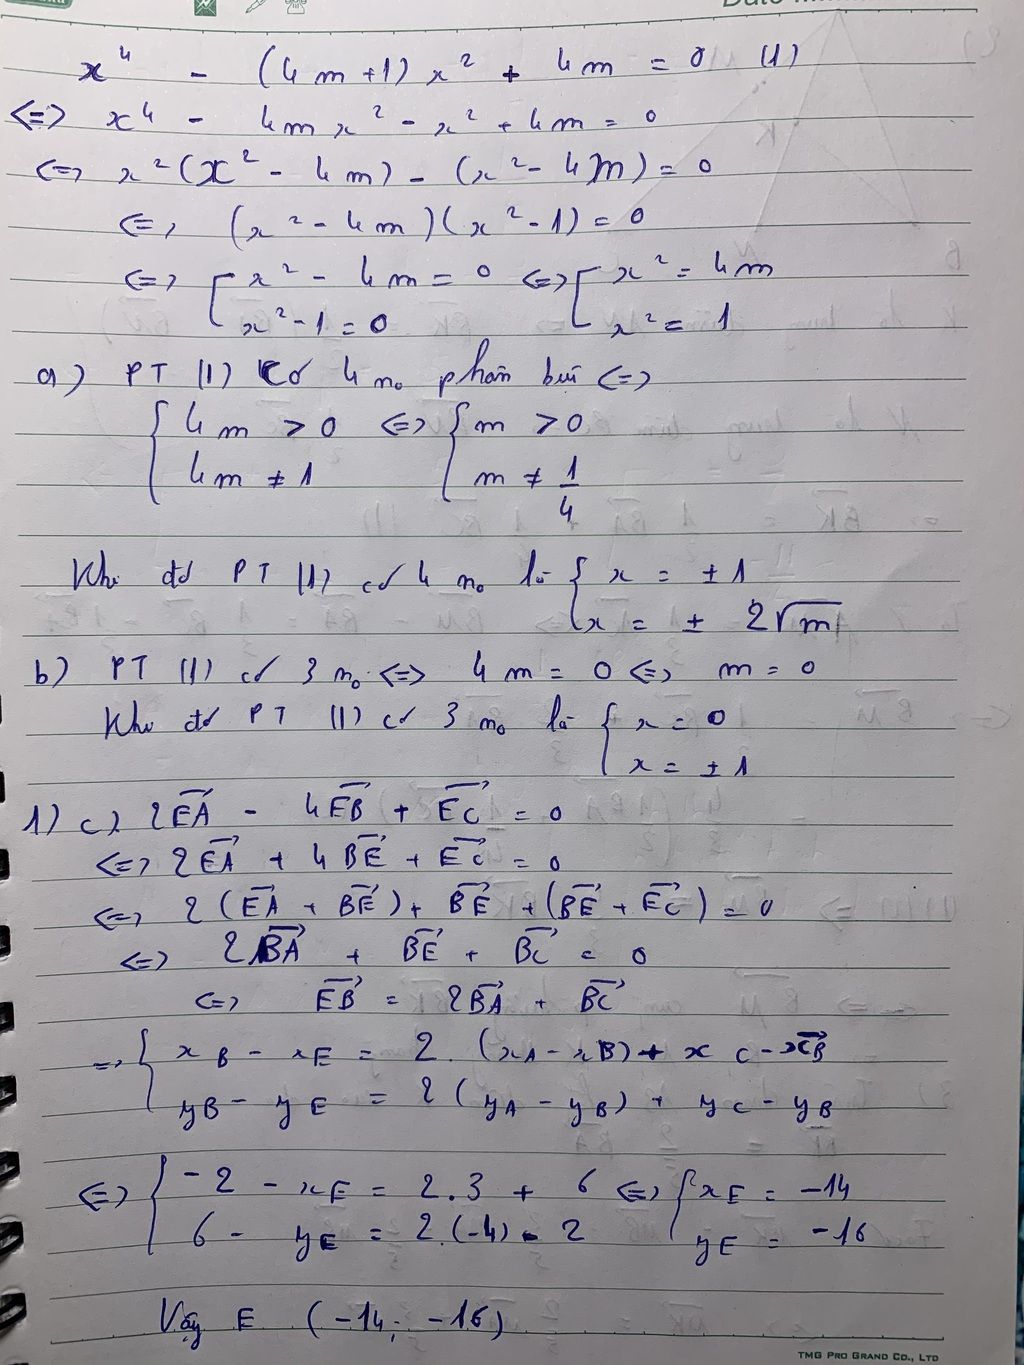 x⁴ - (4m+1)x² + 4m = 0 (1)
<=> x⁴ - 4mx² - x² + 4m = 0
<=> x²(x² - 4m) - (x² - 4m) = 0
<=> (x² - 4m)(x² - 1) = 0
<=> [ x² - 4m = 0 <=> [ x² = 4m
x² - 1 = 0 x² = 1
a) PT (1) có 4 n₀ phân biệt <=>
{ 4m > 0 <=> { m > 0
4m ≠ 1 m ≠ 1/4
Khi đó PT (1) có 4 n₀ là { x = ±1
x = ± 2√m
b) PT (1) có 3 n₀ <=> 4m = 0 <=> m = 0
Khi đó PT (1) có 3 n₀ là { x = 0
x = ±1
1) c) 2EA⃗ - 4EB⃗ + EC⃗ = 0
<=> 2EA⃗ + 4BE⃗ + EC⃗ = 0
<=> 2(EA⃗ + BE⃗) + BE⃗ + (BE⃗ + EC⃗) = 0
<=> 2BA⃗ + BE⃗ + BC⃗ = 0
<=> EB⃗ = 2BA⃗ + BC⃗
=> { xB - xE = 2.(xA - xB) + xC - xB
yB - yE = 2(yA - yB) + yC - yB
<=> { -2 - xE = 2.3 + 6 <=> { xE = -14
6 - yE = 2.(-4) - 2 yE = -16
Vậy E (-14; -16)
TMG PRO GRAND CO., LTD